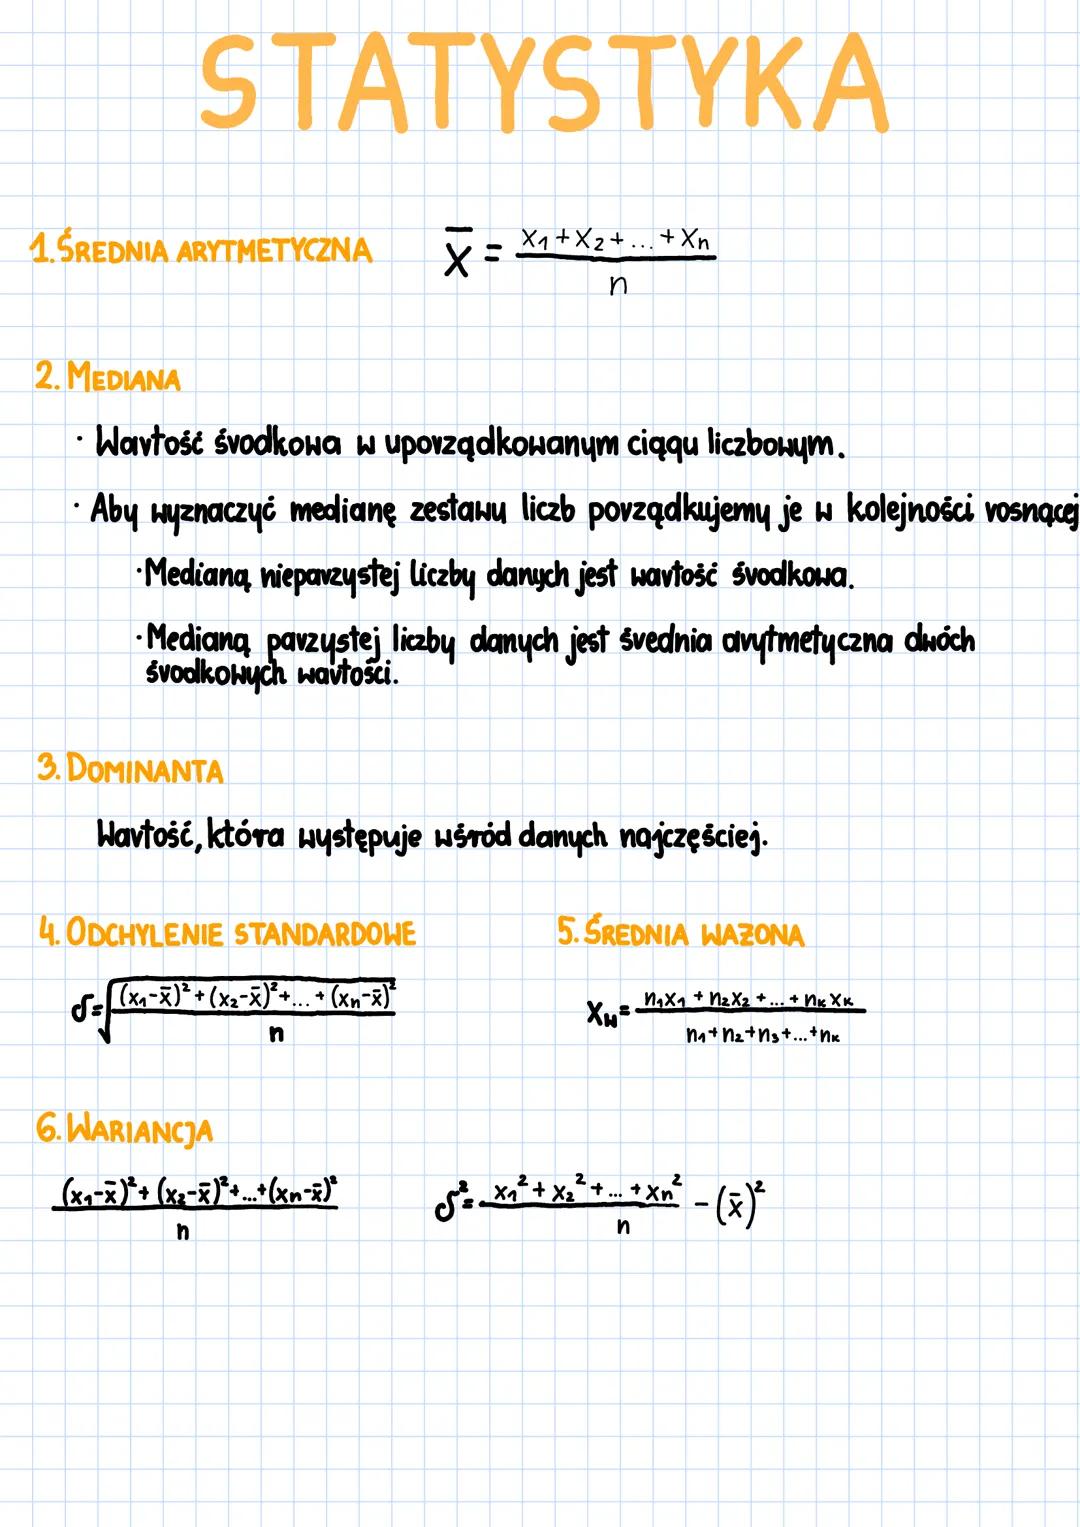 STATYSTYKA
1. ŚREDNIA ARYTMETYCZNA x̄ = (x₁ + x₂ + ... + xₙ) / n
2. MEDIANA
· Wartość środkowa w uporządkowanym ciągu liczbowym.
· Aby wyznaczyć medianę zestawu liczb porządkujemy je w kolejności rosnącej
· Medianą nieparzystej liczby danych jest wartość środkowa.
· Medianą parzystej liczby danych jest średnia arytmetyczna dwóch
środkowych wartości.
3. DOMINANTA
Wartość, która występuje wśród danych najczęściej.
4. ODCHYLENIE STANDARDOWE
δ = √(((x₁-x̄)² + (x₂-x̄)² + ... + (xₙ-x̄)²) / n)
5. ŚREDNIA WAŻONA
x_w = (n₁x₁ + n₂x₂ + ... + nₖxₖ) / (n₁ + n₂ + n₃ + ... + nₖ)
6. WARIANCJA
((x₁-x̄)² + (x₂-x̄)² + ... + (xₙ-x̄)²) / n
δ² = (x₁² + x₂² + ... + xₙ²) / n - (x̄)²